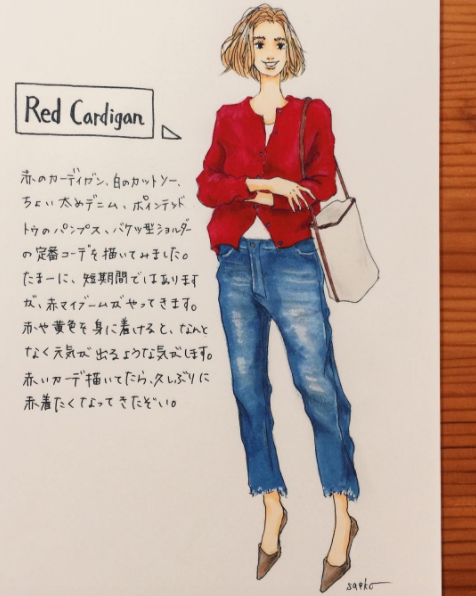 Red Cardigan
赤のカーディガン、白のカットソー、
ちょい太めデニム、ポインテッド
トゥのパンプス、バケツ型ショルダー
の定番コーデを描いてみました。
たまーに、短期間ではあります
が、赤マイブームがやってきます。
赤や黄色を身に着けると、なんと
なく元気が出るような気がします。
赤いカーデ描いてたら、久しぶりに
赤着たくなってきたぞい。
saeko